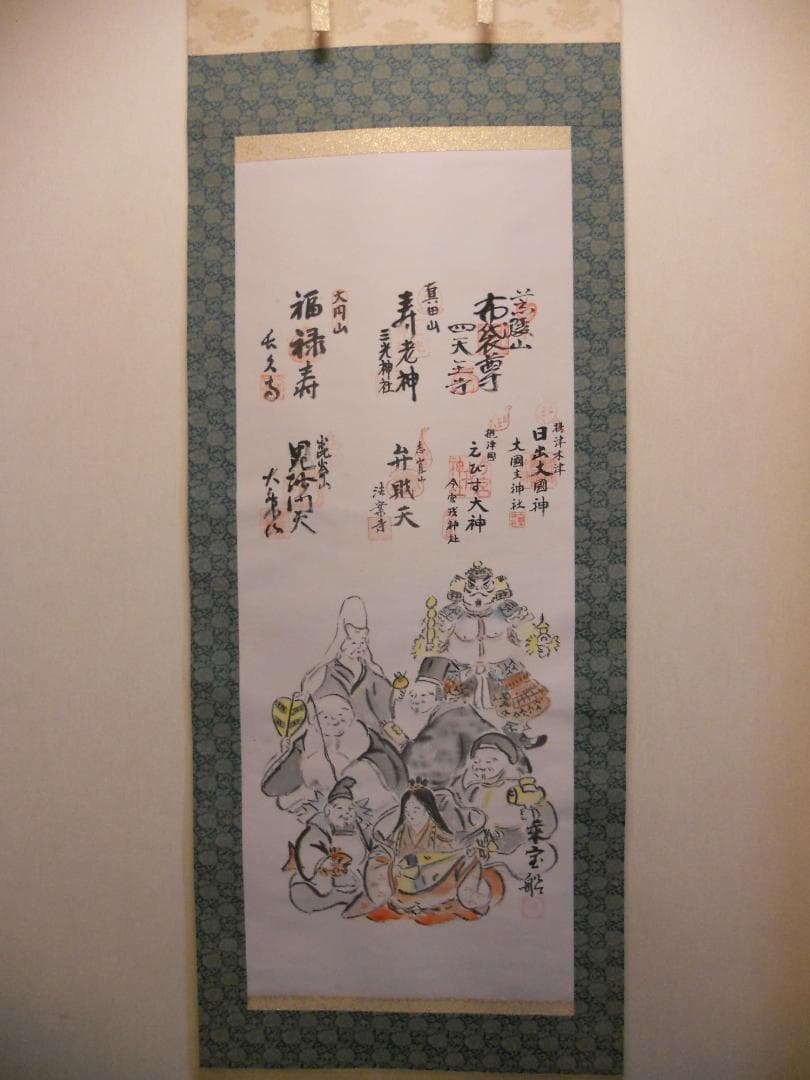 荒陵山
布袋尊
四天王寺
真田山
寿老神
三光神社
大円山
福禄寿
長久寺
摂津木津
日出大國神
大國主神社
摂津國
えびす大神
今宮戎神社
志宜山
弁戝天
法案寺
毘沙門天
大乗坊
乗宝船